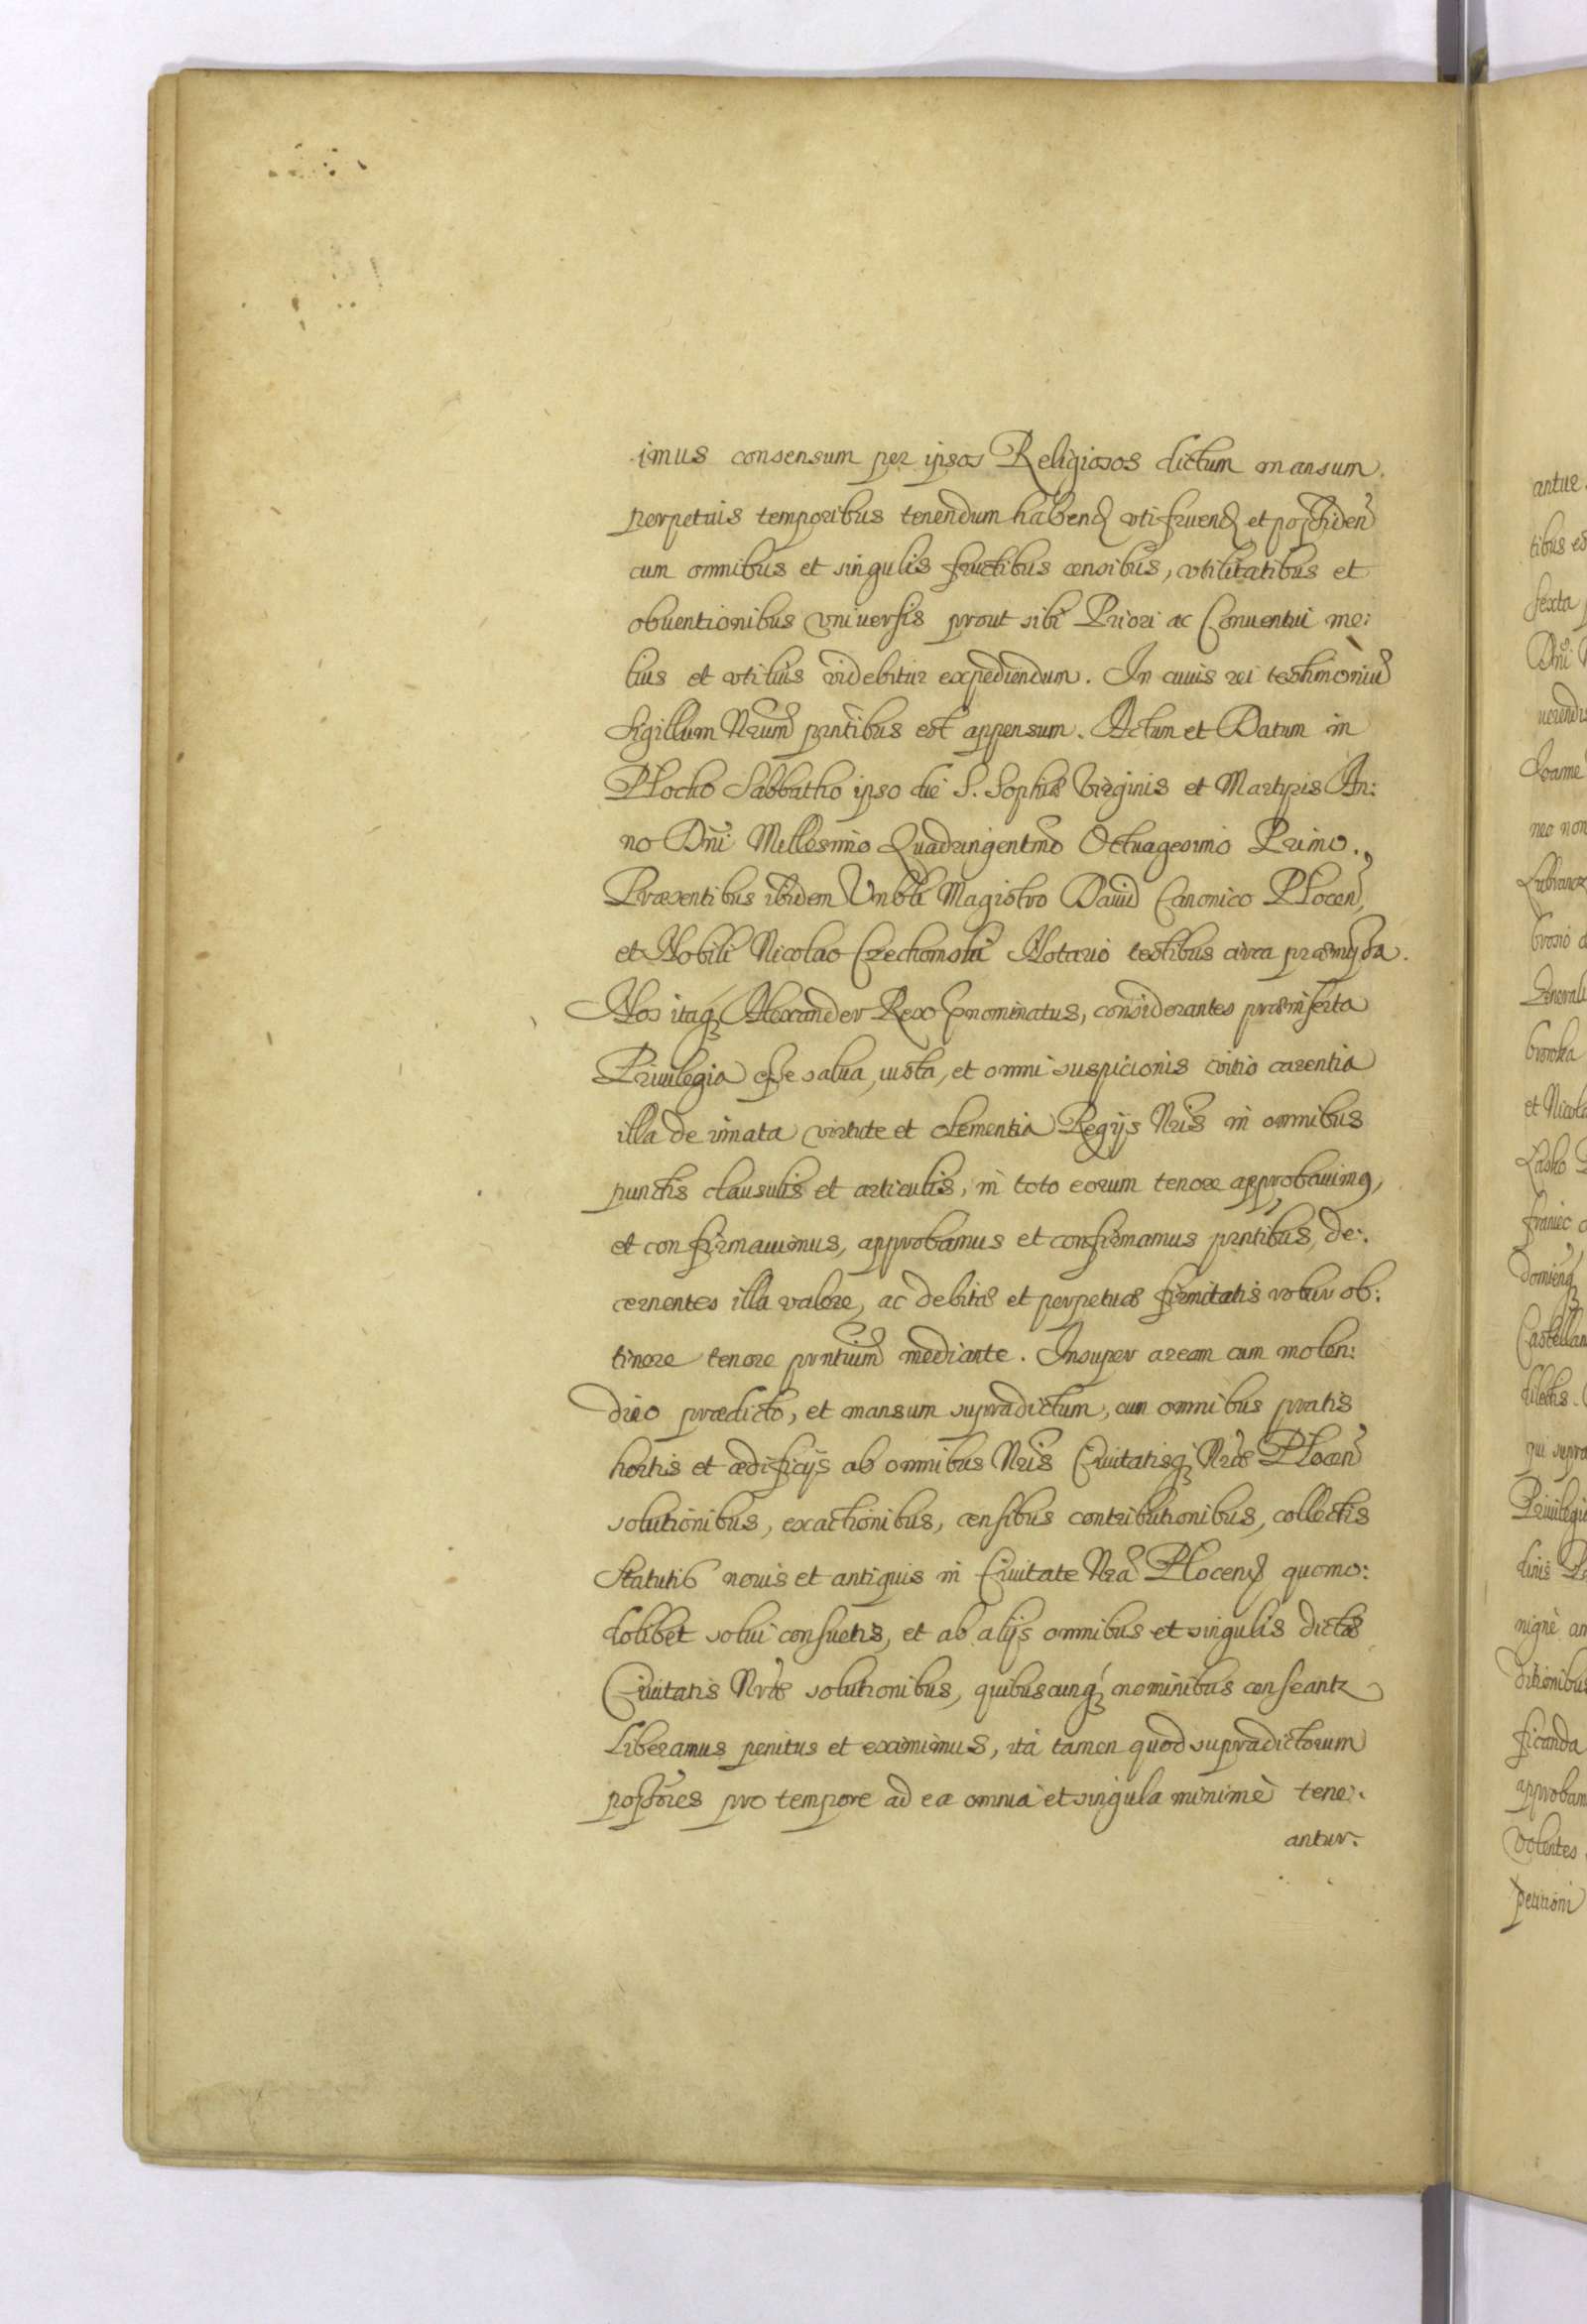 imus consensum per ipsos Religiosos dictum mansum.
perpetuis temporibus tenendum habend utifruend et possiden
cum omnibus et singulis fructibus censibus, vtilitatibus et
obuentionibus vniuersis prout sibi Priori ac Conuentui me:
lius et vtilius videbitur expediendum. In cuius rei testimoniu
Sigillum Nrum prntibus est appensum. Actum et Datum in
Plocko Sabbatho ipso die S. Sophiæ Virginis et Martyris An:
no Dni Millesimo Quadringentmo Octuagesimo Primo.
Præsentibus ibidem Vnbli Magistro Dauid Canonico Plocen,
et Nobili Nicolao Czechomski Notario testibus circa præmissa.
Nos itaq Alexander Rex prnominatus, considerantes præinserta
Priuilegia esse salua, iusta, et omni suspicionis vitio carentia
illa de innata virtute et clementia Regijs Nris in omnibus
punctis clausulis et articulis, in toto eorum tenore approbauimq,
et confirmauimus, approbamus et confirmamus prntibus, de:
cernentes illa valere, ac debitæ et perpetuæ firmitatis robur ob:
tinere tenore prntium mediante. Insuper aream cum molen:
dino prædicto, et mansum supradictum, cum omnibus pratis
hortis et ædificijs ab omnibus Nris Ciuitatisq Nræ Plocen
solutionibus, exactionibus, censibus contributionibus, collectis
Statutis nouis et antiquis in Ciuitate Nra Plocens quomo:
dolibet solui consuetis, et ab alijs omnibus et singulis dictæ
Ciuitatis Nræ solutionibus, quibuscunq nominibus censeantr
Liberamus penitus et eximimus, ità tamen quod supradictorum
possores pro tempore ad ea omnia et singula minimè tene:
antur.